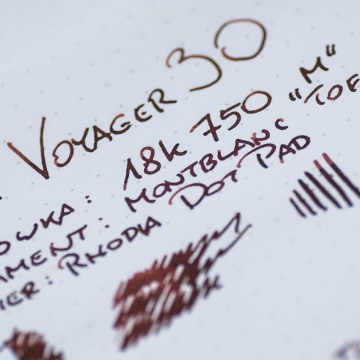 VOYAGER 30
OWKA: 18K 750 "M"
AMENT: MONTBLANC TOF
IER: RHODIA DOT PAD